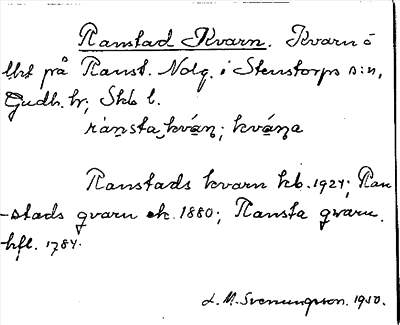 Ranstad Kvarn. Kvarn o
lht på Ranst. Nolg. i Stenstorps s:n,
Gudh. hr; Skb l.
rànsta kván; kvána
Ranstads kvarn kb. 1924; Ran
-stads qvarn ek. 1880; Ransta qwarn
hfl. 1784.
L. M. Svenungsson. 1950.